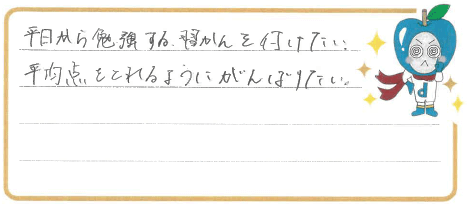 平日から勉強する習かんを付けたい。
平均点をとれるようにがんばりたい。
d